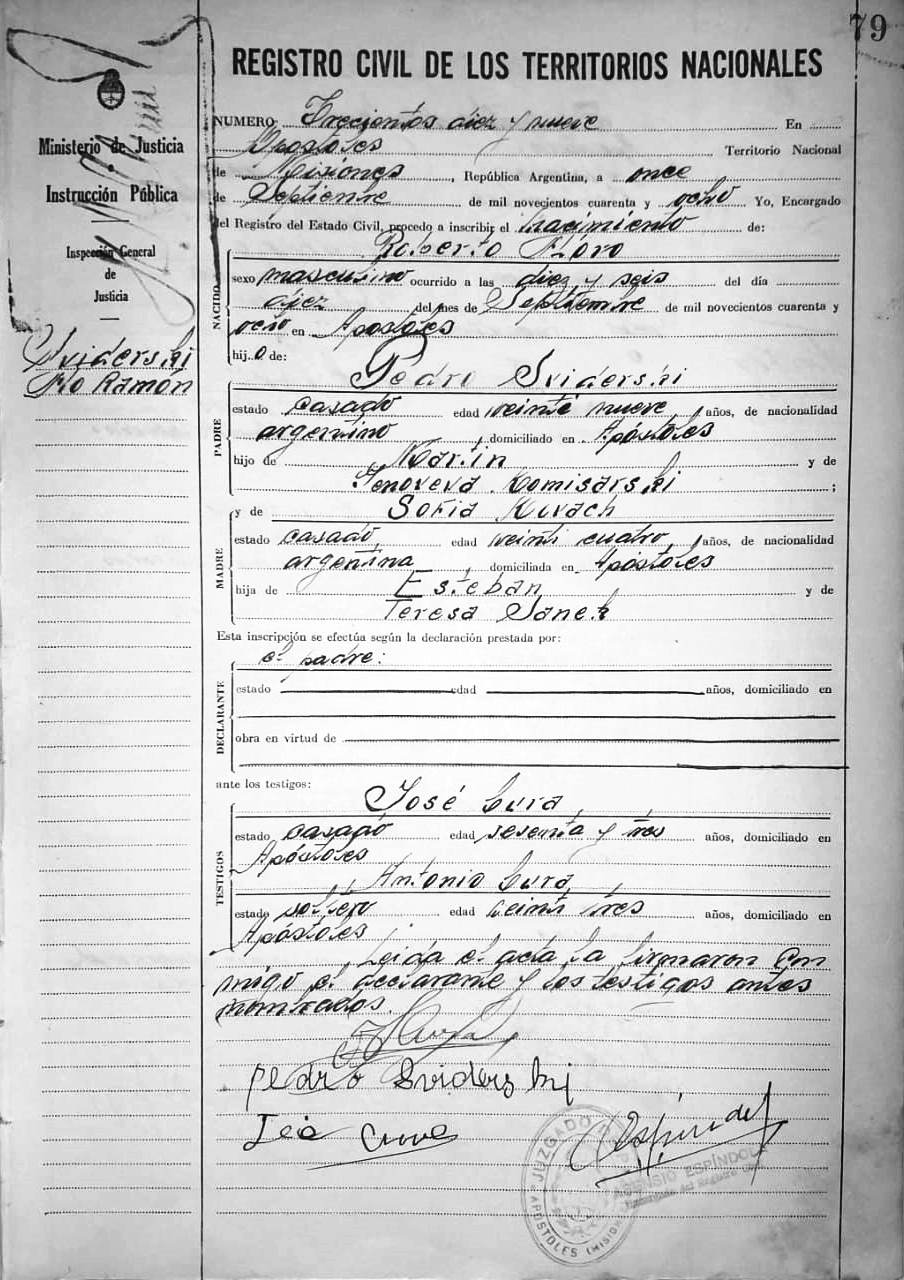 79
REGISTRO CIVIL DE LOS TERRITORIOS NACIONALES
Ministerio de Justicia
Instrucción Pública
Inspección General
de
Justicia
Sviderski
Ramón
NUMERO Trecientos diez y nueve En
Apostoles Territorio Nacional
de Misiones, República Argentina, a once
de Septiembre de mil novecientos cuarenta y ocho Yo, Encargado
del Registro del Estado Civil, procedo a inscribir el nacimiento de:
NACIDO
Roberto Floro
sexo masculino ocurrido a las diez y seis del día
diez del mes de Septiembre de mil novecientos cuarenta y
ocho en Apostoles
hijo de:
PADRE
Pedro Sviderski
estado casado edad veinte nueve años, de nacionalidad
argentino, domiciliado en Apóstoles
hijo de Martin y de
Genoveva Komisarski;
MADRE
y de Sofia Kuvach
estado casado edad veinti cuatro, años, de nacionalidad
argentina, domiciliada en Apóstoles
hija de Esteban y de
Teresa
Esta inscripción se efectúa según la declaración prestada por:
DECLARANTE
el padre:
estado edad años, domiciliado en
obra en virtud de
ante los testigos:
TESTIGOS
José Cura
estado casado edad sesenta y tres años, domiciliado en
Apóstoles
Antonio Cura
estado soltero edad veinti tres años, domiciliado en
Apóstoles
Leida el acta la firmaron con
migo el declarante y los testigos antes
nombrados.
Pedro Sviderski
JUZGADO
APOSTOLES (MISIONES)
ASENSIO ESPÍNDOLA